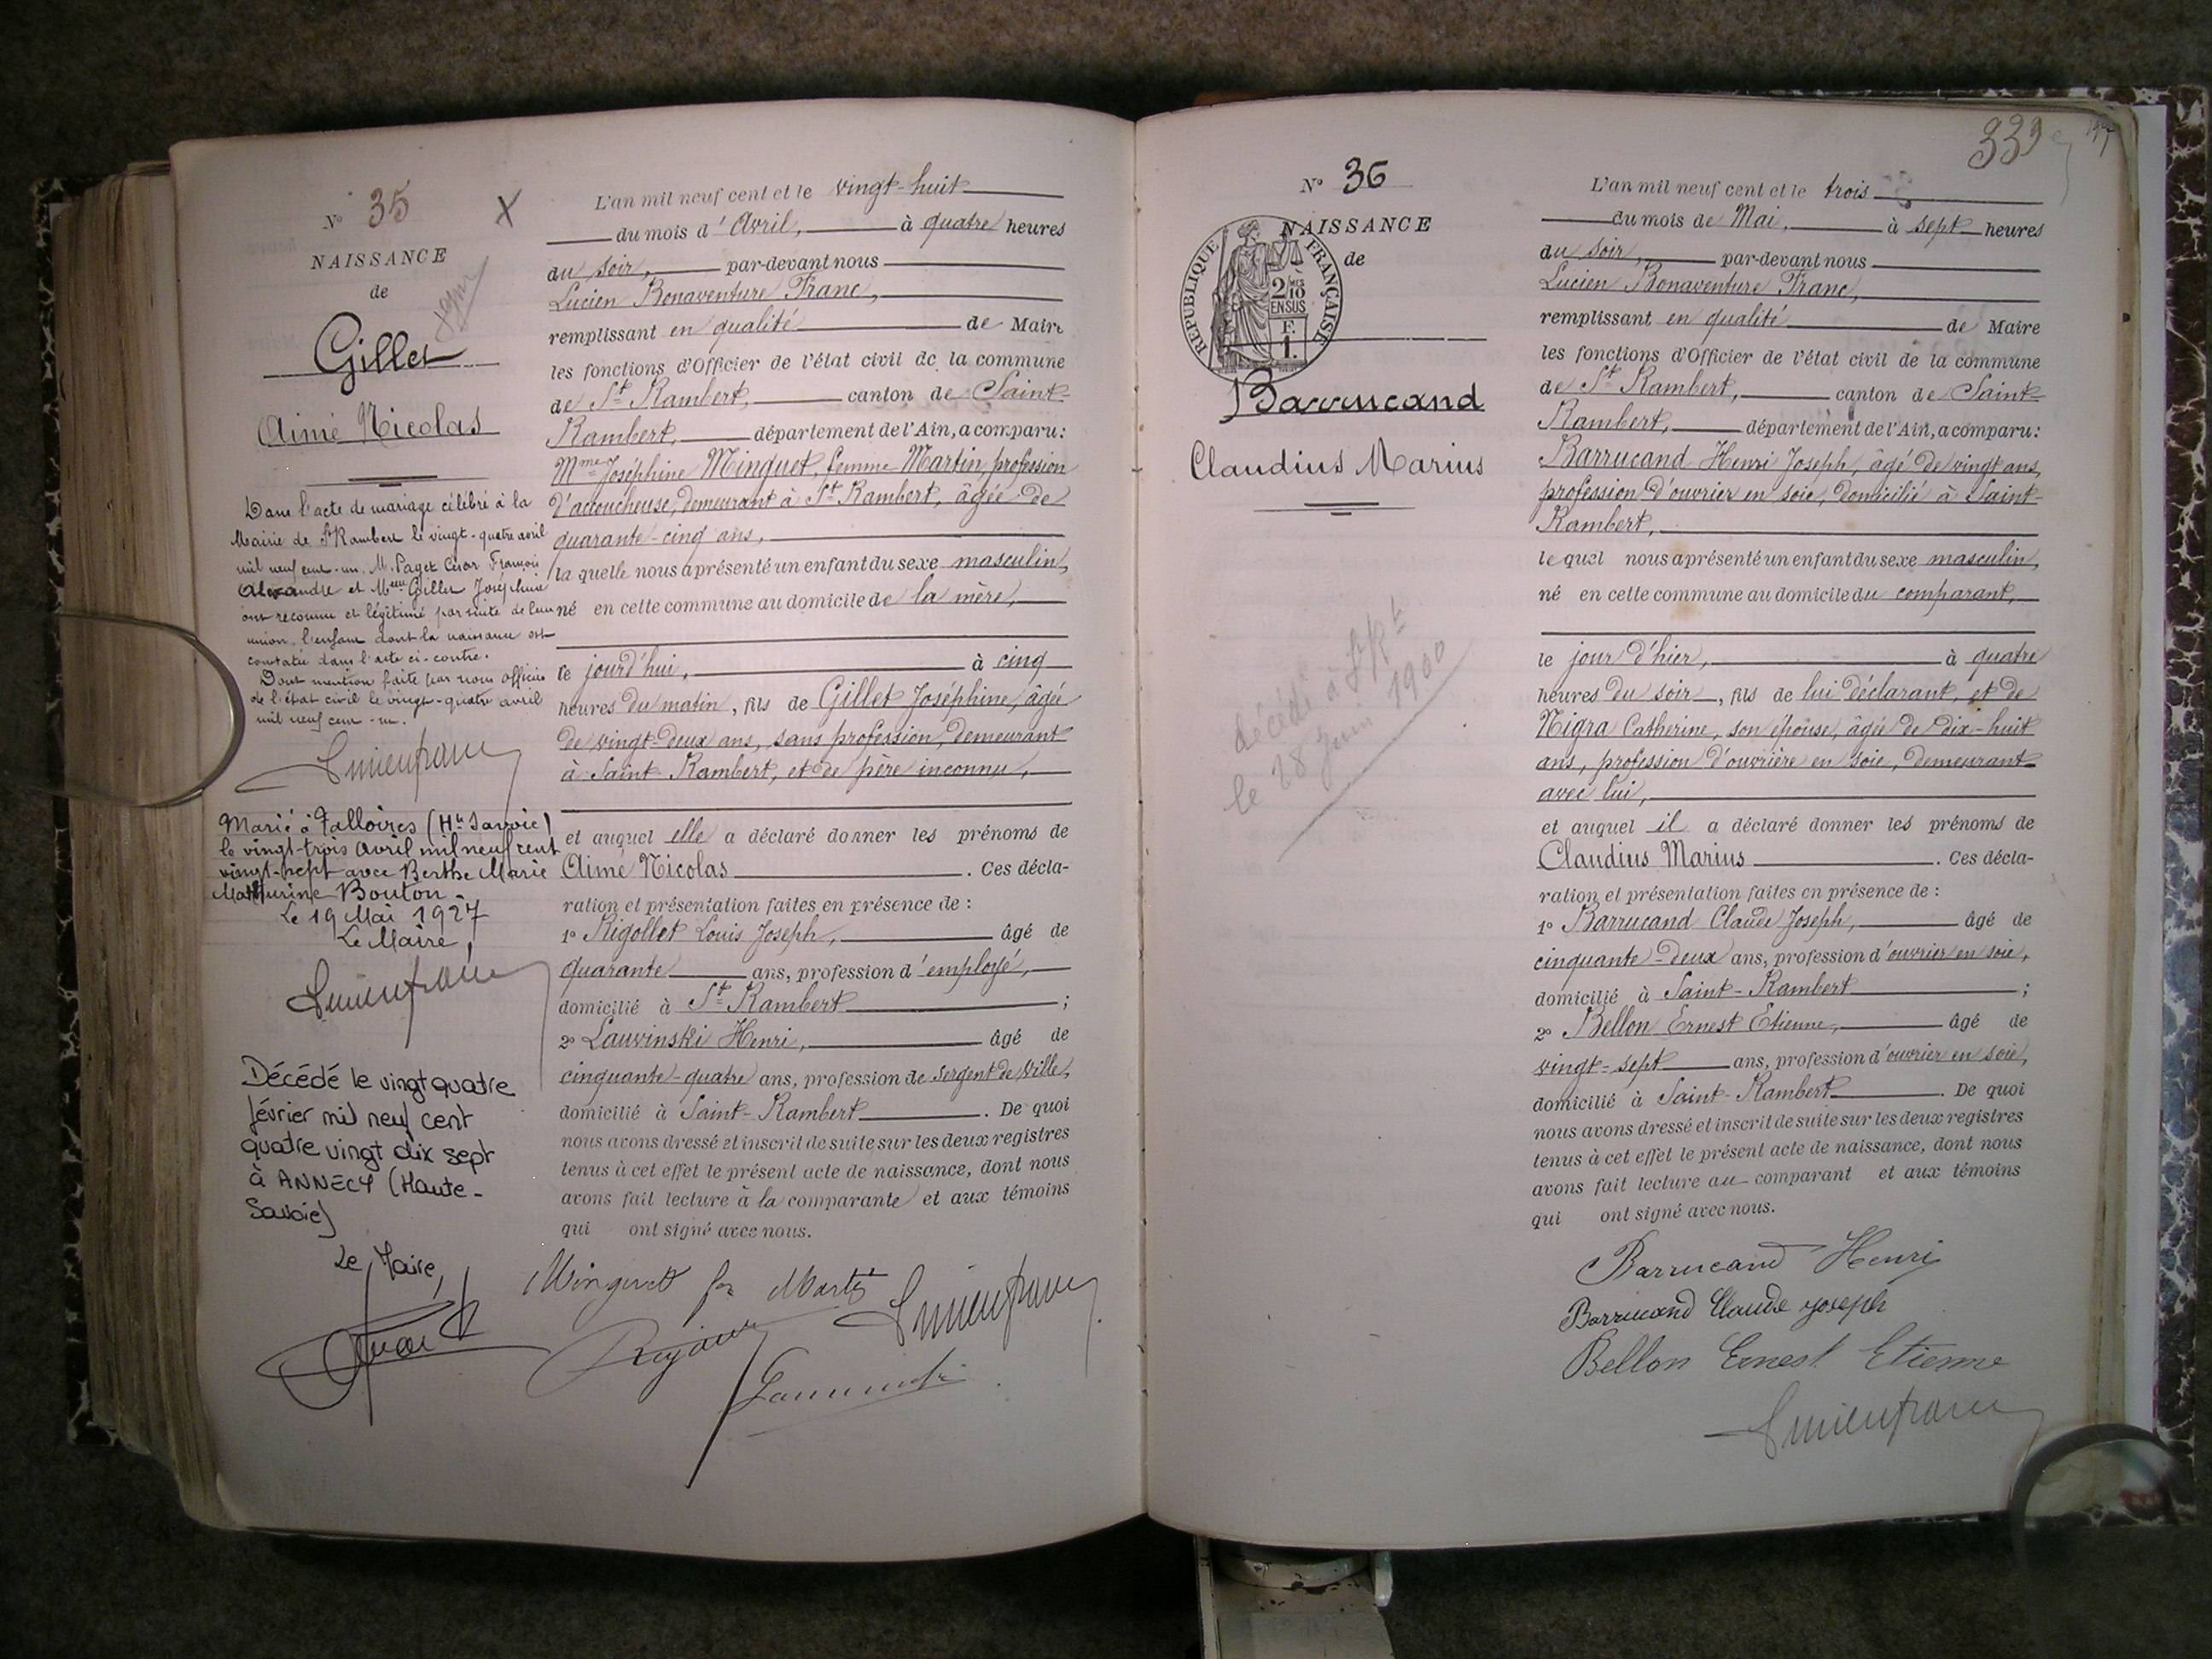 N° 35
X
NAISSANCE
de
Gillet
Aimé Nicolas
Dans l'acte de mariage célébré à la
Mairie de St Rambert le vingt-quatre avril
mil neuf cent-un, M. Paget César François
Alexandre et Melle Gillet Joséphine
ont reconnu et légitimé par suite de leur
union, l'enfant dont la naissance est
constatée dans l'acte ci-contre.
Dont mention faite par nous officier
de l'état civil le vingt-quatre avril
mil neuf cent-un.
Lucienfranc
Marié à Talloires (Hte Savoie)
le vingt-trois Avril mil neuf cent
vingt-sept avec Berthe Marie
Mathurine Bouton.
Le 19 Mai 1927
Le Maire,
Lucienfranc
Décédé le vingt quatre
février mil neuf cent
quatre vingt dix sept
à ANNECY (Haute-
Savoie)
Le Maire,
L'an mil neuf cent et le vingt-huit
du mois d'Avril, à quatre heures
du soir, par-devant nous
Lucien Bonaventure Franc,
remplissant en qualité de Maire
les fonctions d'Officier de l'état civil de la commune
de St Rambert, canton de Saint-
Rambert, département de l'Ain, a comparu:
Mme Joséphine Minguet, femme Martin, profession
d'accoucheuse, demeurant à St Rambert, âgée de
quarante-cinq ans,
la quelle nous a présenté un enfant du sexe masculin,
né en cette commune au domicile de la mère,
le jourd'hui, à cinq
heures du matin, fils de Gillet Joséphine, âgée
de vingt-deux ans, sans profession, demeurant
à Saint Rambert, et de père inconnu,
et auquel elle a déclaré donner les prénoms de
Aimé Nicolas. Ces décla-
ration et présentation faites en présence de :
1° Rigollet Louis Joseph, âgé de
quarante ans, profession d'employé,
domicilié à St Rambert ;
2° Lauvinski Henri, âgé de
cinquante-quatre ans, profession de sergent de ville,
domicilié à Saint-Rambert. De quoi
nous avons dressé et inscrit de suite sur les deux registres
tenus à cet effet le présent acte de naissance, dont nous
avons fait lecture à la comparante et aux témoins
qui ont signé avec nous.
Lucienfranc
339
N° 36
NAISSANCE
de
REPUBLIQUE FRANÇAISE
2/10 EN SUS
F.
1.
Barrucand
Claudius Marius
décédé à St Rt
le 28 Juin 1900
L'an mil neuf cent et le trois
du mois de Mai, à sept heures
du soir, par-devant nous
Lucien Bonaventure Franc,
remplissant en qualité de Maire
les fonctions d'Officier de l'état civil de la commune
de St Rambert, canton de Saint-
Rambert, département de l'Ain, a comparu:
Barrucand Henri Joseph, âgé de vingt ans,
profession d'ouvrier en soie, domicilié à Saint-
Rambert,
le quel nous a présenté un enfant du sexe masculin,
né en cette commune au domicile du comparant,
le jour d'hier, à quatre
heures du soir, fils de lui déclarant, et de
Nigra Catherine, son épouse, âgée de dix-huit
ans, profession d'ouvrière en soie, demeurant
avec lui,
et auquel il a déclaré donner les prénoms de
Claudius Marius. Ces décla-
ration et présentation faites en présence de :
1° Barrucand Claude Joseph, âgé de
cinquante-deux ans, profession d'ouvrier en soie,
domicilié à Saint-Rambert ;
2° Bellon Ernest Etienne, âgé de
vingt-sept ans, profession d'ouvrier en soie,
domicilié à Saint-Rambert. De quoi
nous avons dressé et inscrit de suite sur les deux registres
tenus à cet effet le présent acte de naissance, dont nous
avons fait lecture au comparant et aux témoins
qui ont signé avec nous.
Barrucand Henri
Barrucand Claude joseph
Bellon Ernest Etienne
Lucienfranc